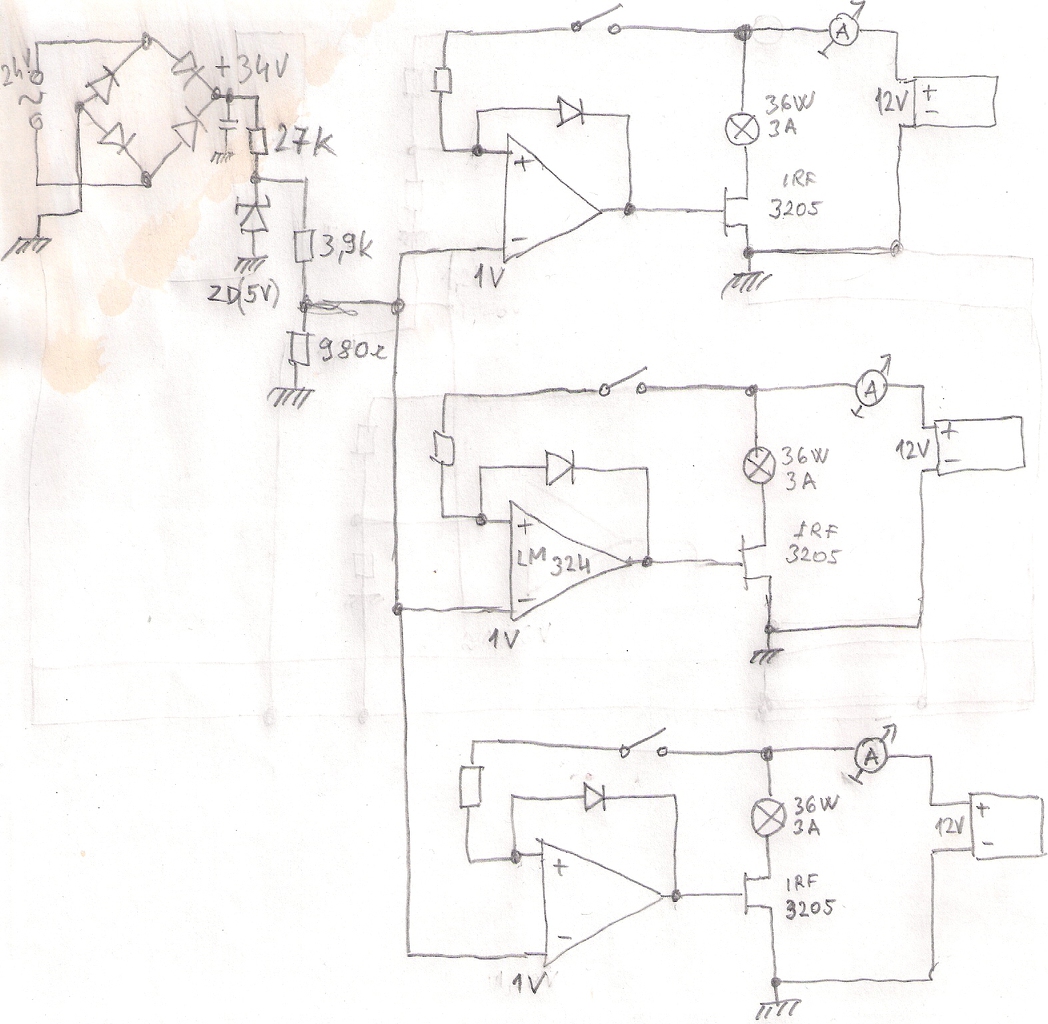 24V
~
+34V
27K
ZD(5V)
3,9k
980Ω
A
12V
+
-
36W
3A
IRF
3205
+
-
1V
A
12V
+
-
36W
3A
IRF
3205
+
LM 324
-
1V
A
12V
+
-
36W
3A
IRF
3205
+
-
1V